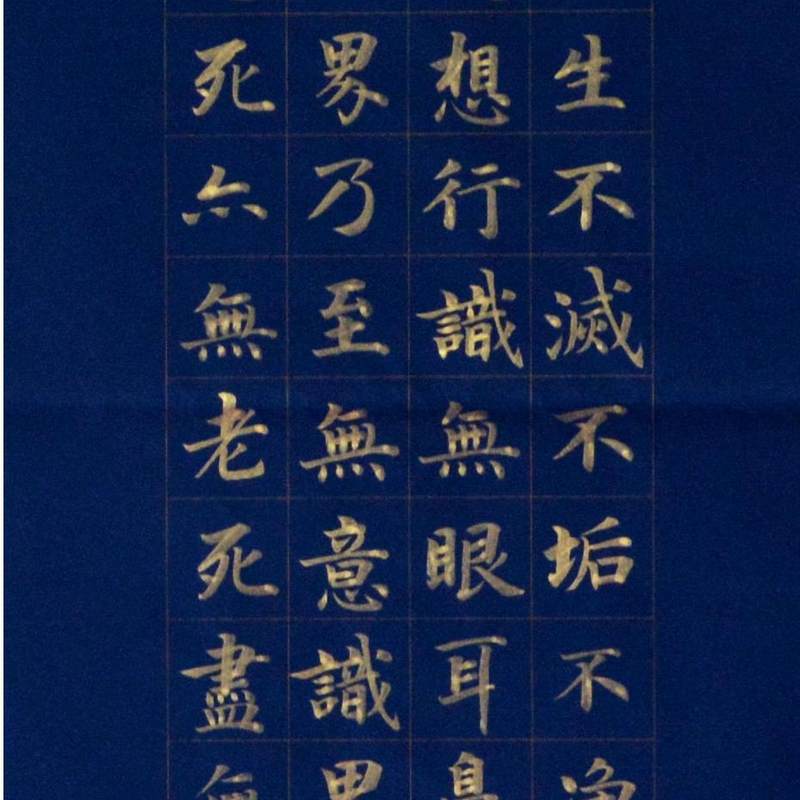 生不滅不垢不净
想行識無眼耳鼻
界乃至無意識界
死亦無老死盡無